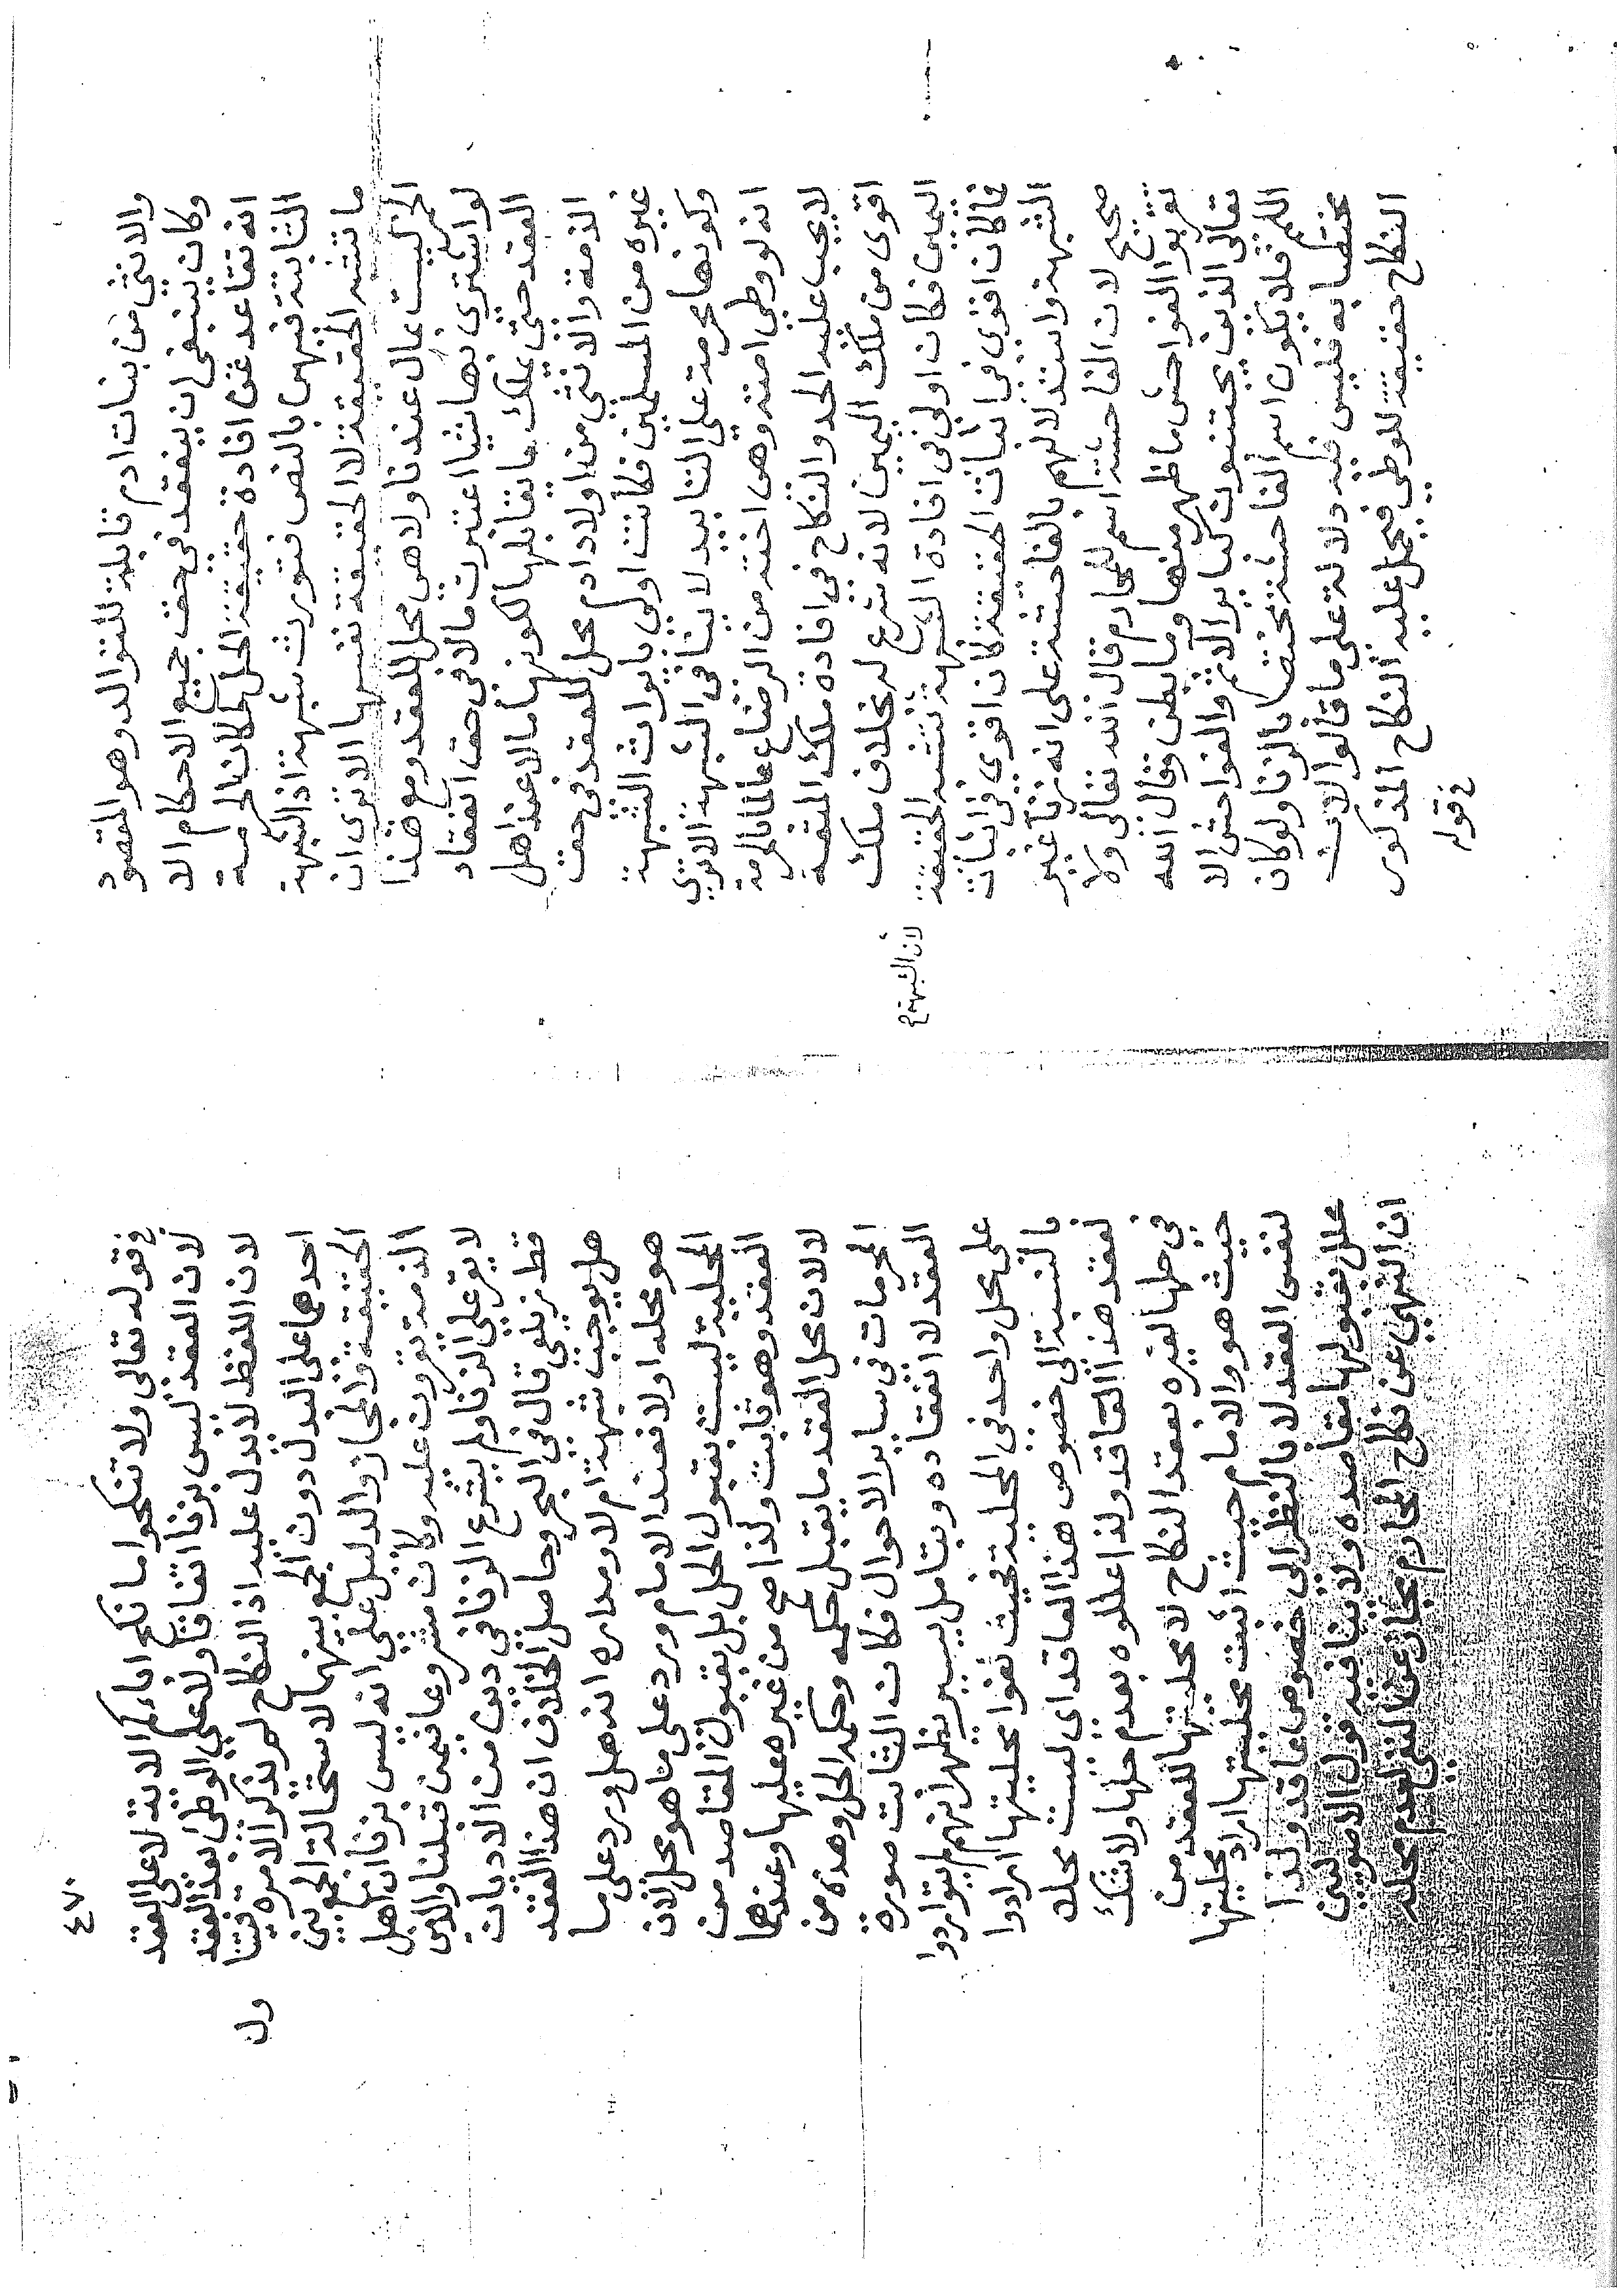 والانثى من بنات ادم قابلة للتوالد وهو المقصود
وكان ينبغى ان ينعقد في حق جميع الاحكام الا
انه تقاعد عن افادة حقيقة الحل لمكان الحرمة
الثابتة فيهن بالنص فتورث شبهة اذ الشبهة
ما تشبه الحقيقة لا الحقيقة نفسها الا ترى ان
الخمر ليست بمال عندنا ولا هى محل للعقد ومع هذا
لو اشترى بها شيا اعتبرت مالا في حق انعقاد
العقد حتى يملك ما يقابلها لكونها مالا عند اهل
الذمة والانثى من اولاد ادم محل للعقد في حق
غيره من المسلمين فكانت اولى بايراث الشبهة
وكونها محرمة على التابيد لا ينافى الشبهة الا ترى
انه لو وطى امته وهى اخته من الرضاع عالما بالحرمة
لا يجب عليه الحد والنكاح في افادة ملك المتعة
اقوى من ملك اليمين لانه شرع له بخلاف ملك
اليمين فكان اولى في افادة الشبهة لان الشبهة تشبه الحقيقة
فما كان اقوى في اثبات الحقيقة كان اقوى في اثبات
الشبهة واستدلالهم بالفاحشة على انه زنا غير
صحيح لان الفاحشة اسم للمحارم قال الله تعالى ولا
تقربوا الفواحش ما ظهر منها وما بطن وقال الله
تعالى الذين يجتنبون كباير الاثم والفواحش الا
اللمم فلا يكون اسم الفاحشة مختصا بالزنا ولو كان
مختصا به فليس فيه دلالة على ما قالوا لان
النكاح حقيقة للوطى فيحمل عليه النكاح المذكور
في قوله
٤٧٠
في قوله تعالى ولا تنكحوا ما نكح اباءكم الاية لا على العقد
لان العقد ليس بزنا اتفاقا ولا على الوطئ بعد العقد
لان اللفظ لا يدل عليه اذ النكاح لم يذكر الا مرة فيتنا
ول
احدهما على البدل دون الجمع بينهما لاستحالة الجمع بين
الحقيقة والمجاز والدليل على انه ليس بزنا ان اهل
الذمة يقرون عليه وكان مشروعا فيمن قبلنا والذمى
لا يقر على الزنا ولم يشرع الزنا في دين من الاديان
قط زيلعى قال في البحر وحاصل الخلاف ان هذا العقد
هل يوجب شبهة ام لا ومداره انه هل ورد على ما
هو محله اولا فعند الامام ورد على ما هو محل لان
المحلية ليست بقبول الحل بل بقبول المقاصد من
العقد وهو ثابت ولذا صح من غيره عليها وعندهما
لا لان محل العقد ما يقبل حكمه وحكمه الحل وهذه من
المحرمات في ساير الاحوال فكان الثابت صورة
العقد لا انعقاده وبتامل يسير يظهر انهم لم يتواردوا
على محل واحد في المحلية فحيث نفوا محليتها ارادوا
بالنسبة الى خصوص هذا العاقد اى ليست محلا
لعقد هذا العاقد ولذا عللوه بعدم حلها ولا شك
في حلها لغيره بعقد النكاح لا محليتها للعقد من
حيث هو والامام حيث اثبت محليتها اراد محليتها
لنفس العقد لا بالنظر الى خصوص عاقد ولذا
علل بقبولها مقاصده ولا ينافيه قول الاصوليين
ان النهى عن نكاح المحارم مجاز عن النفى لعدم محله